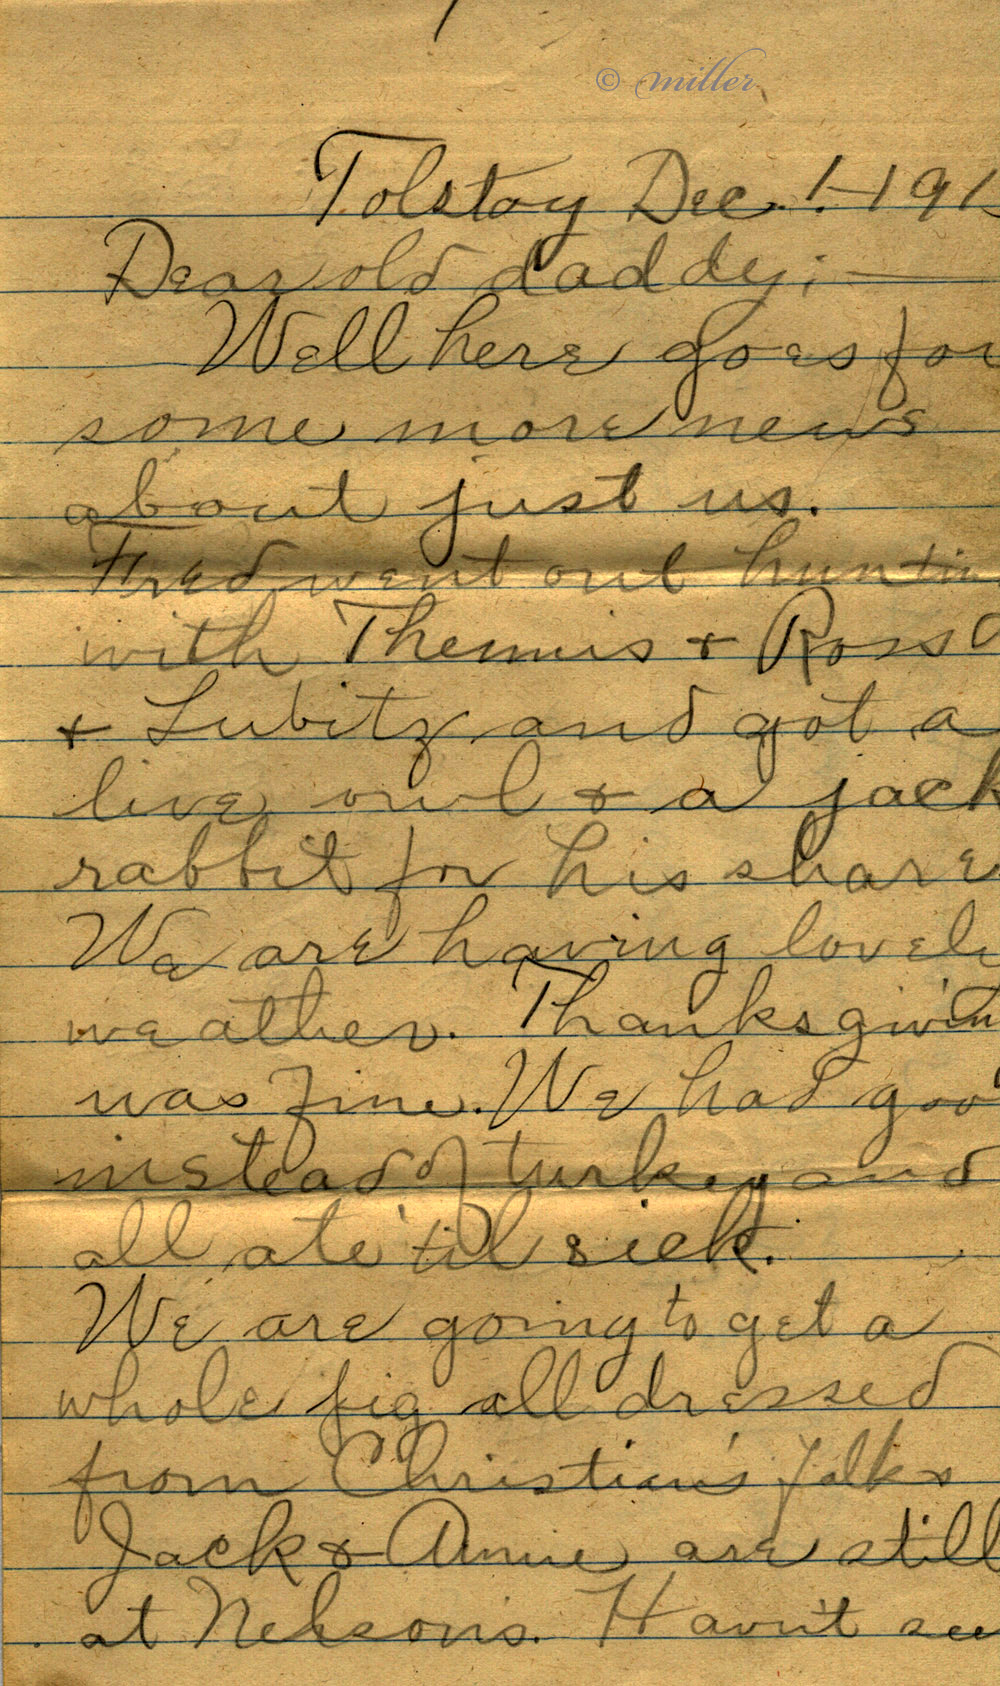 © miller
Tolstoy Dec. 1. - 191
Dear old daddy; —
Well here goes for
some more news
about just us.
Fred went out huntin
with Themis + Ross
+ Lubitz and got a
live owl & a jack
rabbit for his share
We are having lovely
weather. Thanksgivin
was fine. We had goo
instead of turkey and
all ate 'til sick.
We are going to get a
whole pig all dressed
from Christian's folks
Jack & Annie are still
at Nelson's. Hav'nt see